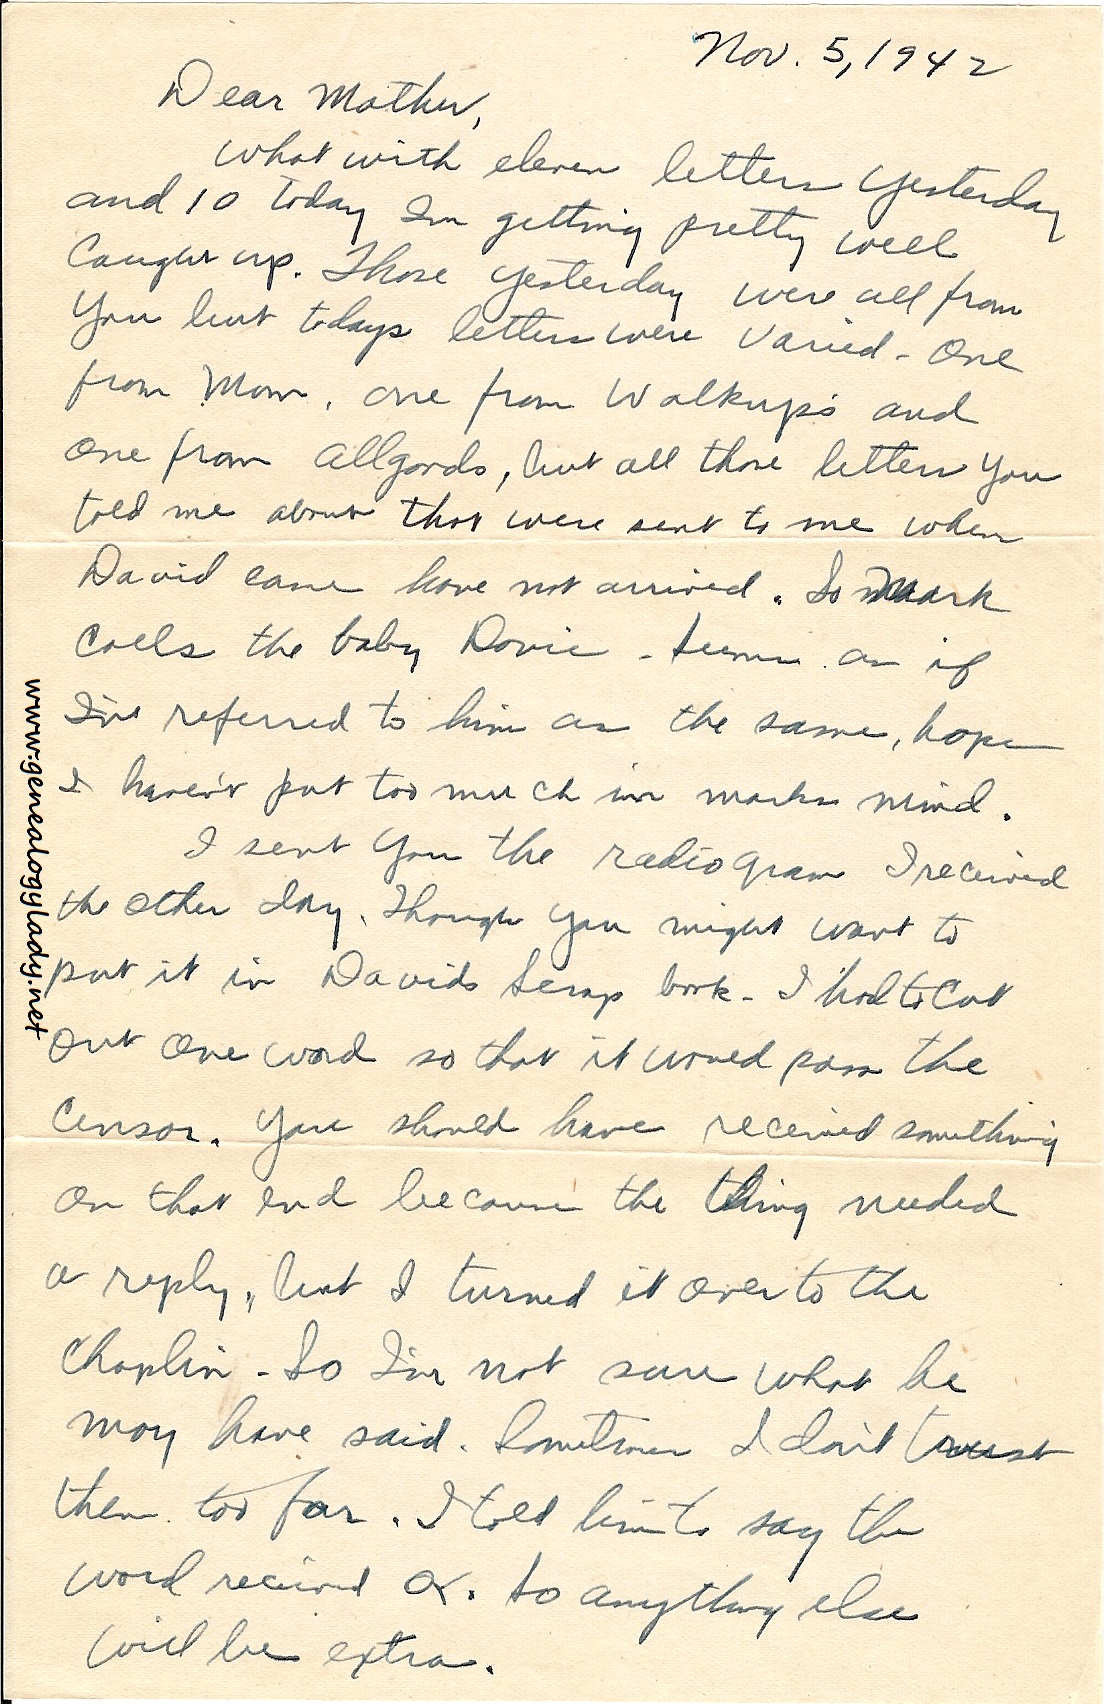 Nov. 5, 1942
Dear Mother,
What with eleven letters yesterday
and 10 today I'm getting pretty well
caught up. Those yesterday were all from
you but todays letters were varied - one
from Mom, one from Walkup's and
one from Allgoods, but all those letters you
told me about that were sent to me when
David came have not arrived. So Mark
calls the baby Davie - seems as if
I've referred to him as the same, hope
I haven't put too much in Marks mind.
I sent you the radiogram I received
the other day. Though you might want to
put it in Davids scrap book - I had to cut
out one word so that it would pass the
censor. You should have received something
on that end because the thing needed
a reply, but I turned it over to the
Chaplin - So I'm not sure what he
may have said. Sometimes I don't trust
them too far. I told him to say the
word received OK. So anything else
will be extra.
www.genealogylady.net